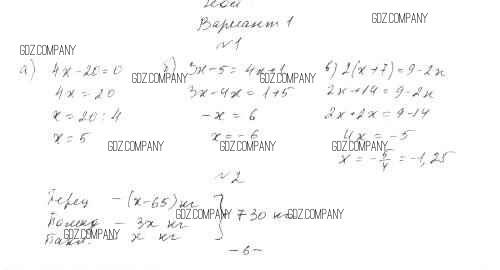 Вариант 1
GDZ.COMPANY
№1
GDZ.COMPANY
а) 4x-20=0 б) 3x-5=4x+1 в) 2(x+7)=9-2x
GDZ.COMPANY GDZ.COMPANY
4x=20 3x-4x=1+5 2x+14=9-2x
x=20:4 -x=6 2x+2x=9-14
x=5 x=-6 4x=-5
GDZ.COMPANY GDZ.COMPANY GDZ.COMPANY
x=-5/4=-1,25
№2
Перец -(x-65) кг
GDZ.COMPANY GDZ.COMPANY
- 3x кг } 730 кг
GDZ.COMPANY
- x кг
-6-